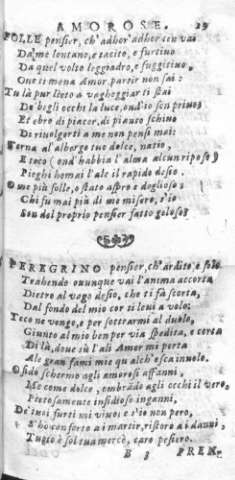 AMOROSE. 29
FOLLE pensier, ch'adhor'adhor sen vai
Da me lontano, e tacito, e furtivo
Da quel volto leggiadro, e fuggitivo
Onde mena Amor partir non sai:
Tu là pur lieto a vagheggiar ti stai
De begli occhi la luce, ond'io son privo;
Et ebro di piacer, di pianto schivo
Di rivolgerti a me non pensi mai:
Torna al'albergo tuo dolce, natio,
E teco (ond'habbia l'alma alcun riposo)
Pieghi homai l'ale il rapido desio.
O me più folle, o stato aspro e doglioso:
Chi fu mai più di me misero, s'io
Son del proprio pensier fatto geloso?
PEREGRINO pensier, ch'ardito, e solo
Trahendo ovunque vai l'anima accorta
Dietro al vago desio, che ti fà scorta,
Dal fondo del mio cor ti levi a volo:
Teco ne vengo, e per sottrarmi al duolo,
Giunto al mio ben per via spedita, e corta
Di là, dove sù l'ali Amor mi porta
Ale gran fami mie qualch'esca involo.
O fido schermo agli amorosi affanni,
Me come dolce, embrãdo agli occhi il vero,
Pietosamente insidioso inganni,
De' tuoi furti mi vivo: e s'io non pero,
S'ho conforto a i martir, ristoro a i danni,
Tutto è sol tua mercè, caro pensiero.
B 3 PREN-